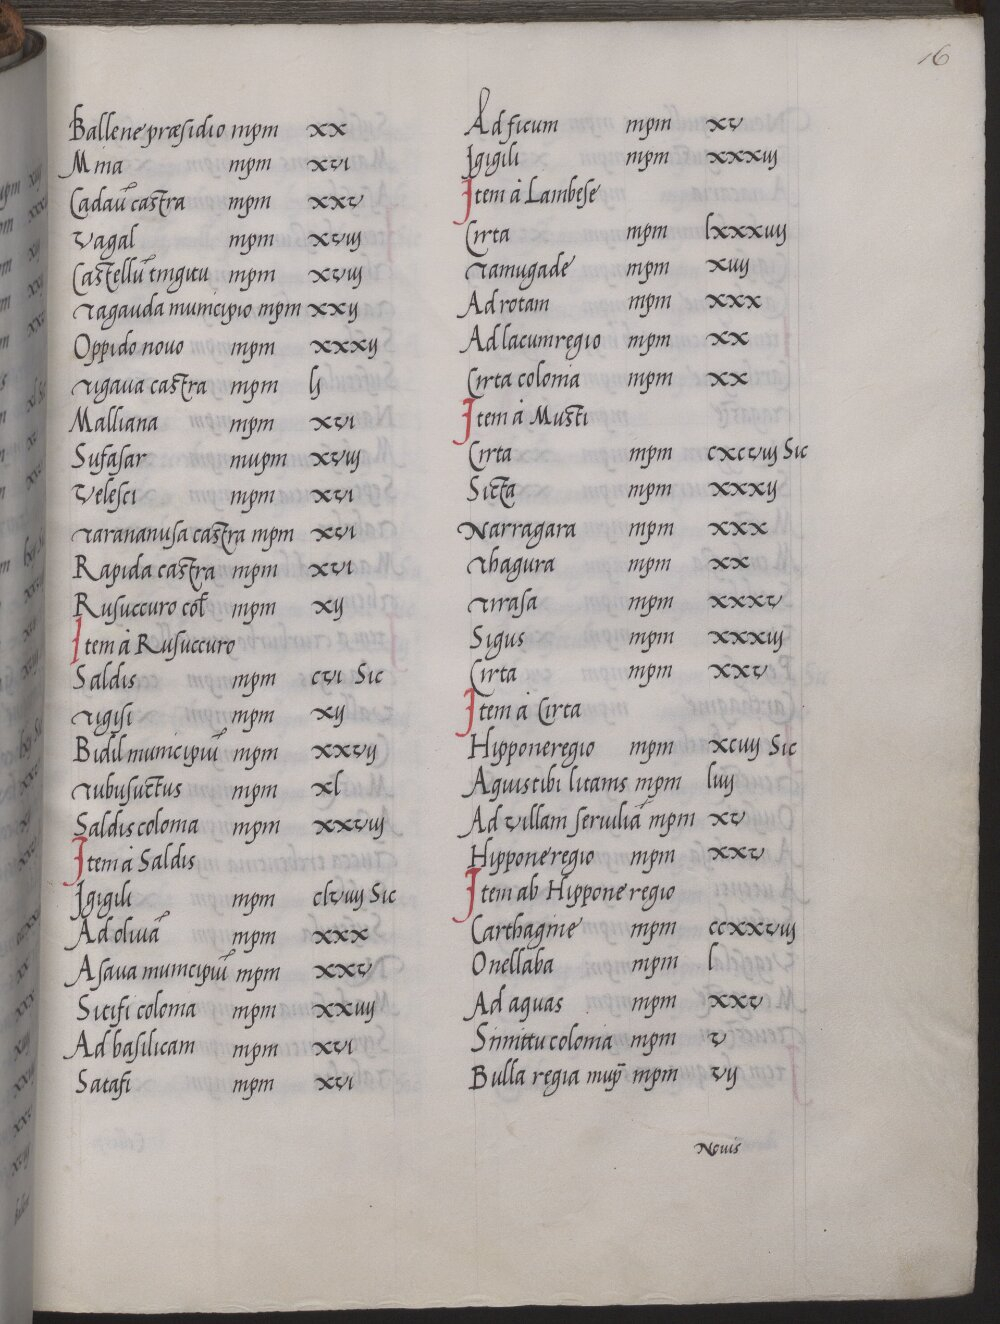 16
Ballene præsidio mpm xx
Mina mpm xvi
Cadaū castra mpm xxv
Vagal mpm xviij
Castellū tingitii mpm xviij
Tagauda municipio mpm xxij
Oppido nouo mpm xxxij
Tigaua castra mpm ij
Malliana mpm xvi
Sufasar mpm xviij
Velesci mpm xvi
Tarananusa castra mpm xvi
Rapida castra mpm xvi
Rusuccuro col mpm xij
Item à Rusuccuro
Saldis mpm cvi Sic
Tigisi mpm xij
Bidil municipiū mpm xxvij
Tubusuctus mpm xl
Saldis colonia mpm xxviij
Item à Saldis
Igigili mpm clviiij Sic
Ad oliuā mpm xxx
Asaua municipiū mpm xxv
Sitifi colonia mpm xxiiij
Ad basilicam mpm xvi
Satafi mpm xvi
Ad ficum mpm xv
Igigili mpm xxxiij
Item à Lambese
Cirta mpm lxxxiiij
Tamugade mpm xiiij
Ad rotam mpm xxx
Ad lacum regio mpm xx
Cirta colonia mpm xx
Item à Musti
Cirta mpm cxcviij Sic
Sicta mpm xxxij
Narragara mpm xxx
Thagura mpm xx
Tirasa mpm xxxv
Sigus mpm xxxiij
Cirta mpm xxv
Item à Cirta
Hippone regio mpm xciiij Sic
Aquistibilitanis mpm liiij
Ad villam seruiliā mpm xv
Hippone regio mpm xxv
Item ab Hippone regio
Carthagine mpm ccxxviij
Onellaba mpm l
Ad aquas mpm xxv
Simittu colonia mpm v
Bulla regia mup̄ mpm vij
Nouis